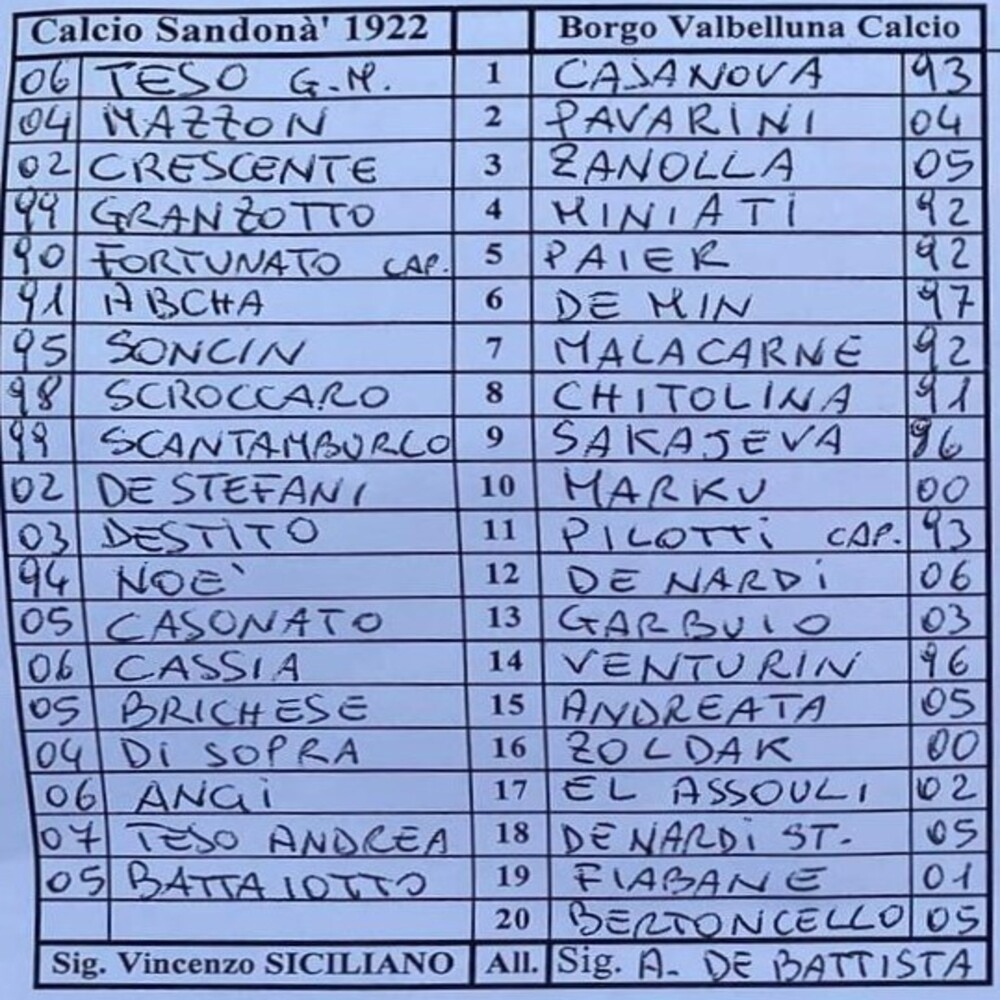 Calcio Sandonà' 1922 Borgo Valbelluna Calcio
06 TESO G.M. 1 CASANOVA 93
04 MAZZON 2 PAVARINI 04
02 CRESCENTE 3 ZANOLLA 05
99 GRANZOTTO 4 MINIATI 92
90 FORTUNATO CAP. 5 PAIER 92
91 ABCHA 6 DE MIN 97
95 SONCIN 7 MALACARNE 92
98 SCROCCARO 8 CHITOLINA 91
99 SCANTAMBURLO 9 SAKAJEVA 96
02 DE STEFANI 10 MARKU 00
03 DESTITO 11 PILOTTI CAP. 93
94 NOE' 12 DE NARDI 06
05 CASONATO 13 GARBUIO 03
06 CASSIA 14 VENTURIN 96
05 BRICHESE 15 ANDREATA 05
04 DI SOPRA 16 ZOLDAK 00
06 ANGI 17 EL ASSOULI 02
07 TESO ANDREA 18 DE NARDI ST. 05
05 BATTAIOTTO 19 FIABANE 01
20 BERTONCELLO 05
Sig. Vincenzo SICILIANO All. Sig. A. DE BATTISTA